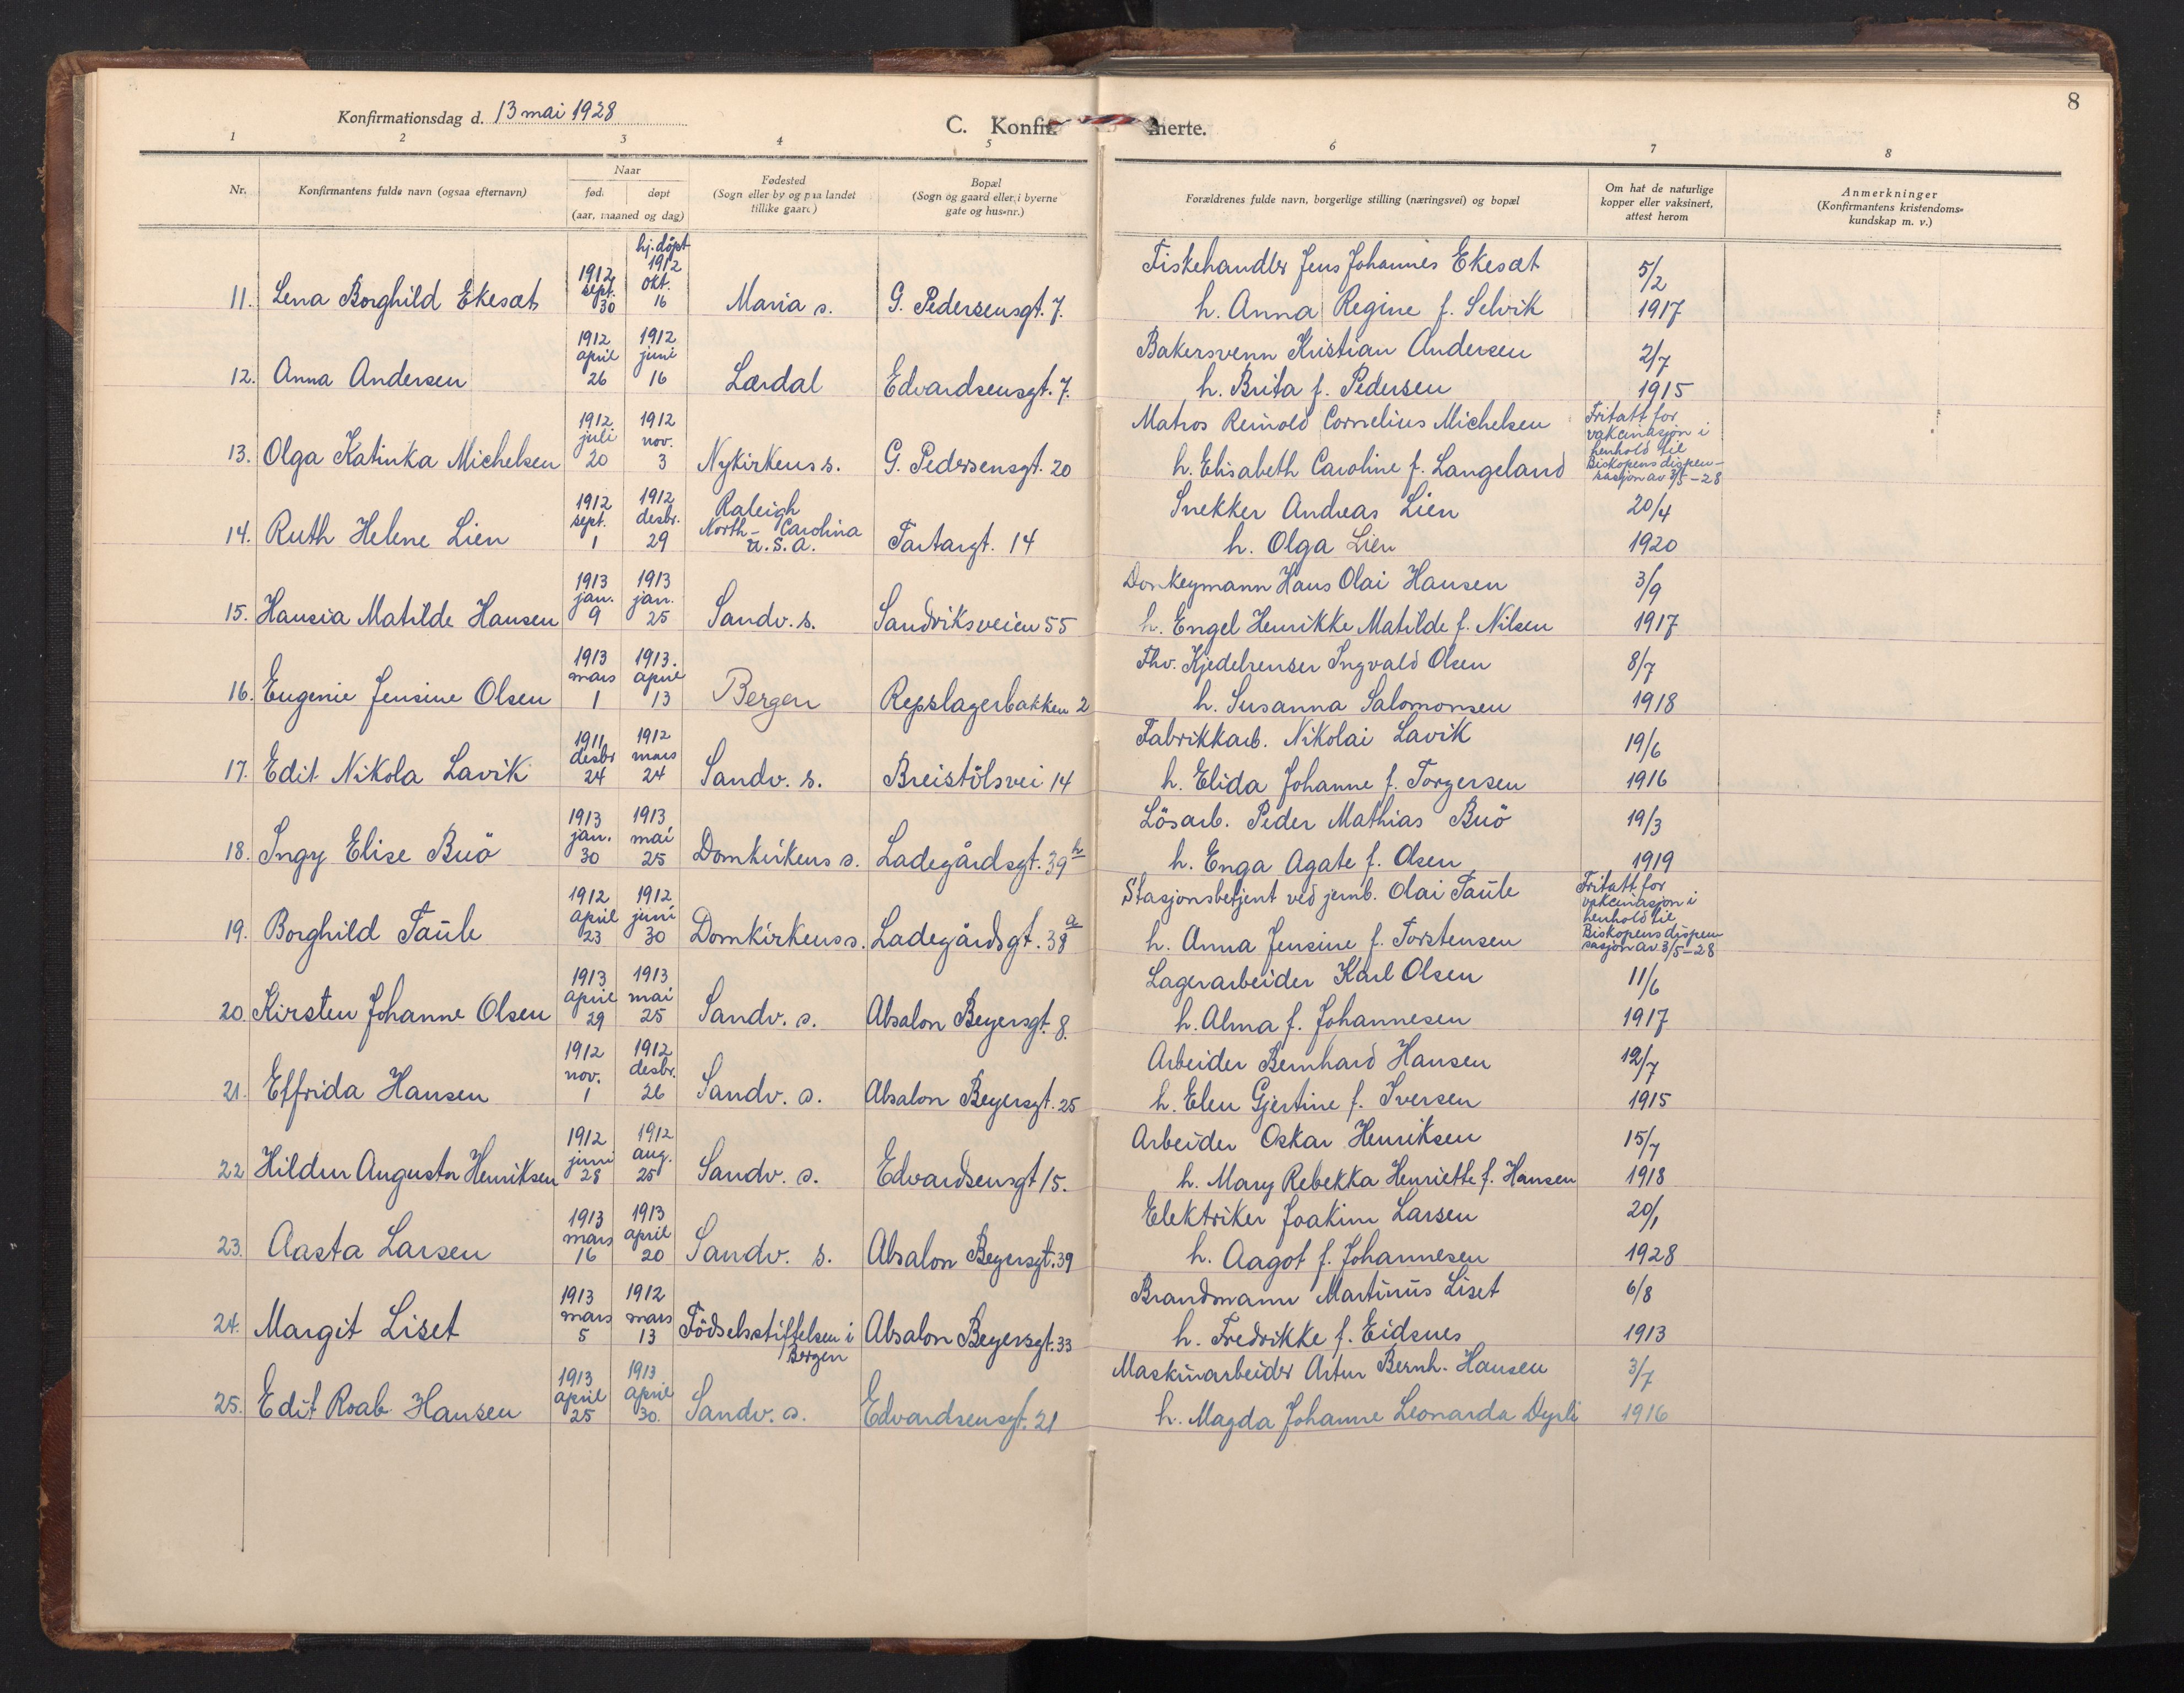 8
Konfirmationsdag d. 13 mai 1928
C. Konfirmerte.
1 2 3 4 5 6 7 8
Nr.
Konfirmantens fulde navn (ogsaa efternavn)
Naar
født døpt
(aar, maaned og dag)
Fødested
(Sogn eller by og paa landet
tillike gaard)
Bopæl
(Sogn og gaard eller i byerne
gate og hus-nr.)
Forældrenes fulde navn, borgerlige stilling (næringsvei) og bopæl
Om hat de naturlige
kopper eller vaksinert,
attest herom
Anmerkninger
(Konfirmantens kristendoms-
kundskap m. v.)
11. Lena Borghild Ekesæt 1912 sept. 30 hj. døpt 1912 okt. 16 Maria s. G. Pedersensgt. 7.
Fiskehandler Jens Johannes Ekesæt 5/2
h. Anna Regine f. Selvik 1917
12. Anna Andersen 1912 april 26 1912 juni 16 Lærdal Edvardsensgt. 7.
Bakersvenn Kristian Andersen 2/7
h. Brita f. Pedersen 1915
13. Olga Katinka Michelsen 1912 juli 20 1912 nov. 3 Nykirkens s. G. Pedersensgt. 20
Matros Reinold Cornelius Michelsen
h. Elisabeth Caroline f. Langeland
Fritatt for
vakcinasjon i
henhold til
Biskopens dispen-
sasjon av 3/5-28
14. Ruth Helene Lien 1912 sept. 1 1912 desbr. 29 Raleigh North-Carolina U.S.A. Tartargt. 14
Snekker Andreas Lien 20/4
h. Olga Lien 1920
15. Hansia Matilde Hansen 1913 jan. 9 1913 jan. 25 Sandv. s. Sandviksveien 55
Donkeymann Hans Olai Hansen 3/9
h. Engel Henrikke Matilde f. Nilsen 1917
16. Eugenie Jensine Olsen 1913 mars 1 1913. april 13 Bergen Repslagerbakken 2
Fhv. Kjedelrenser Ingvald Olsen 8/7
h. Susanna Salomonsen 1918
17. Edit Nikola Lavik 1911 desbr 24 1912 mars 24 Sandv. s. Breistölsvei 14
Fabrikkarb. Nikolai Lavik 19/6
h. Elida Johanne f. Torgersen 1916
18. Ingy Elise Buö 1913 jan. 30 1913 mai 25 Domkirkens s. Ladegårdsgt. 39 h
Lösarb. Peder Mathias Buö 19/3
h. Enga Agate f. Olsen 1919
19. Borghild Taule 1912 april 23 1912 juni 30 Domkirkens s. Ladegårdsgt. 38 a
Stasjonsbetjent ved jernb. Olai Taule
h. Anna Jensine f. Torstensen
Fritatt for
vakcinasjon i
henhold til
Biskopens dispen
sasjon av 3/5-28
20. Kirsten Johanne Olsen 1913 april 29 1913 mai 25 Sandv. s. Absalon Beyersgt. 8.
Lagerarbeider Karl Olsen 11/6
h. Alma f. Johannesen 1917
21. Effrida Hansen 1912 nov. 1 1912 desbr. 26 Sandv. s. Absalon Beyersgt. 25
Arbeider Bernhard Hansen 12/7
h. Elen Gjertine f. Iversen 1915
22 Hildur Augusta Henriksen 1912 juni 28 1912 aug. 25 Sandv. s. Edvardsensgt 15.
Arbeider Oskar Henriksen 15/7
h. Mary Rebekka Henriette f. Hansen 1918
23. Aasta Larsen 1913 mars 16 1913 april 20 Sandv. s. Absalon Beyersgt. 39
Elektriker Joakim Larsen 20/1
h. Aagot f. Johannesen 1928
24. Margit Liset 1913 mars 5 1912 mars 13 Födselsstiftelsen i Bergen Absalon Beyersgt. 33
Brandmann Martinus Liset 6/8
h. Fredrikke f. Eidsnes 1913
25. Edit Roab Hansen 1913 april 25 1913 april 30. Sandv. s. Edvardsensgt. 21
Maskinarbeider Artur Bernh. Hansen 3/7
h. Magda Johanne Leonarda Dyrli 1916